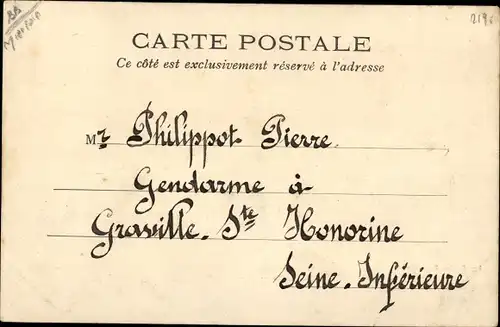 CARTE POSTALE
Ce côté est exclusivement réservé à l'adresse
Mr Philippot Pierre.
Gendarme à
Graville. Ste Honorine
Seine. Inférieure